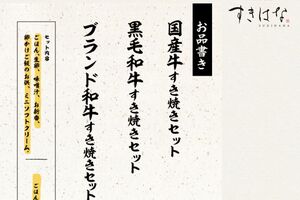 すきはな
SUKIHANA
お品書き
国産牛すき焼きセット
黒毛和牛すき焼きセット
ブランド和牛すき焼きセット
セット内容
ごはん、生卵、味噌汁、お新香、
卵かけご飯のお供、ミニソフトクリーム
ごはん